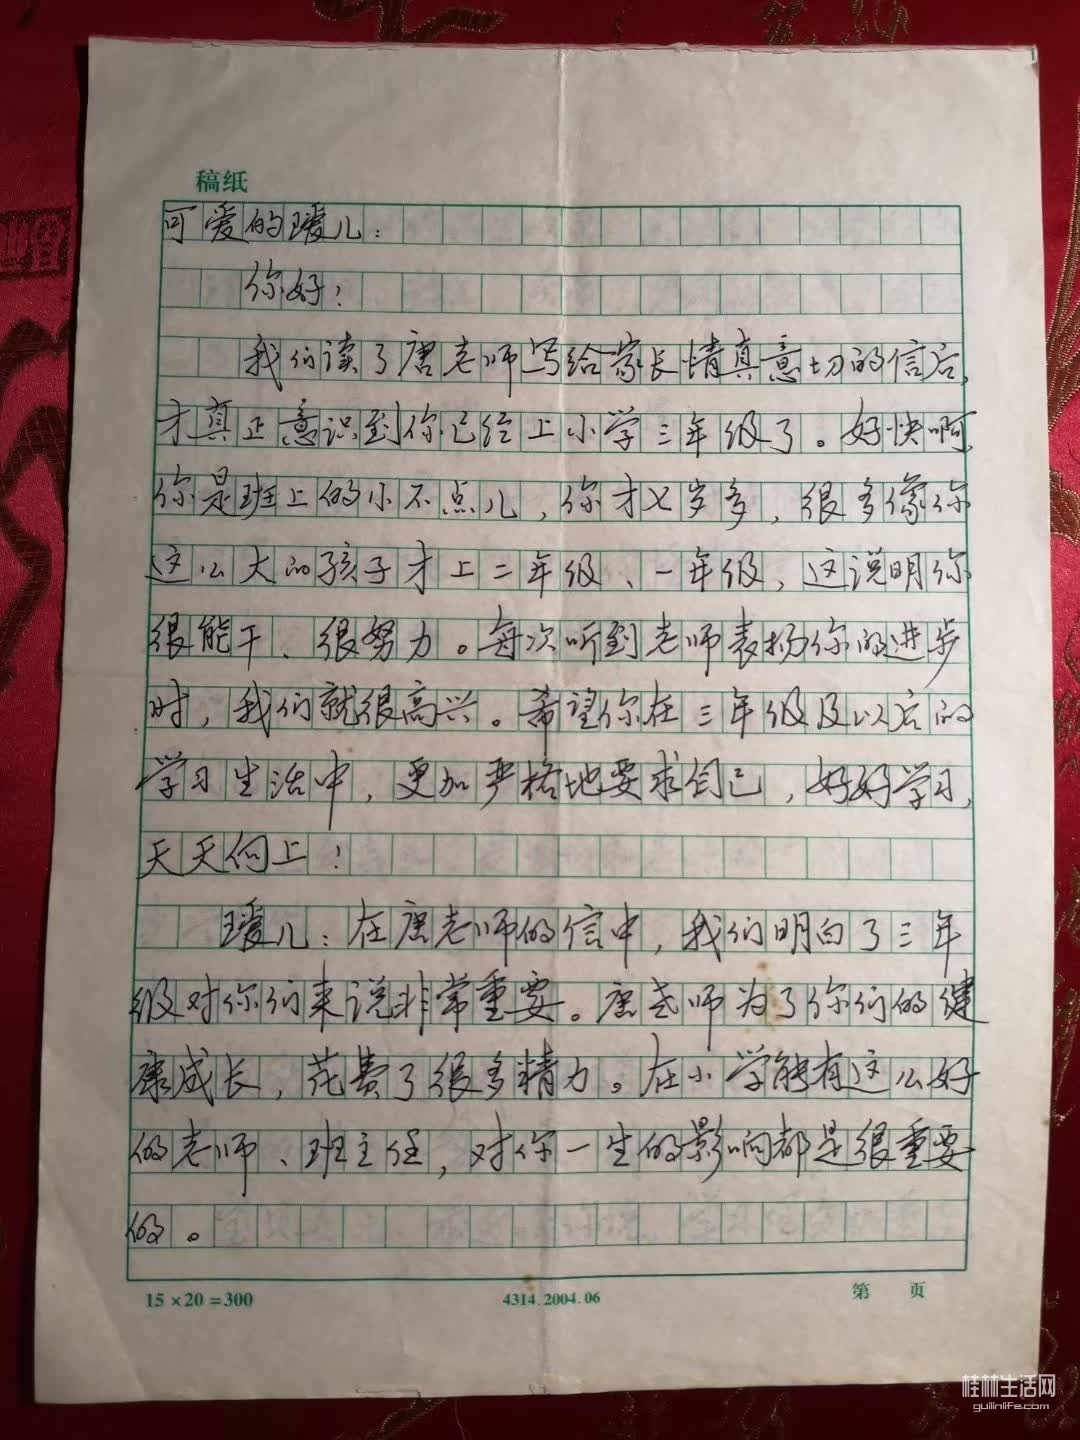 稿纸
可爱的瑷儿：
你好！
我们读了唐老师写给家长情真意切的信后，
才真正意识到你已经上小学三年级了。好快啊，
你是班上的小不点儿，你才七岁多，很多像你
这么大的孩子才上二年级、一年级，这说明你
很能干、很努力。每次听到老师表扬你的进步
时，我们就很高兴。希望你在三年级及以后的
学习生活中，更加严格地要求自己，好好学习，
天天向上！
瑷儿：在唐老师的信中，我们明白了三年
级对你们来说非常重要。唐老师为了你们的健
康成长，花费了很多精力。在小学能有这么好
的老师、班主任，对你一生的影响都是很重要
的。
15×20=300
4314.2004.06
第 页
桂林生活网
guilinlife.com